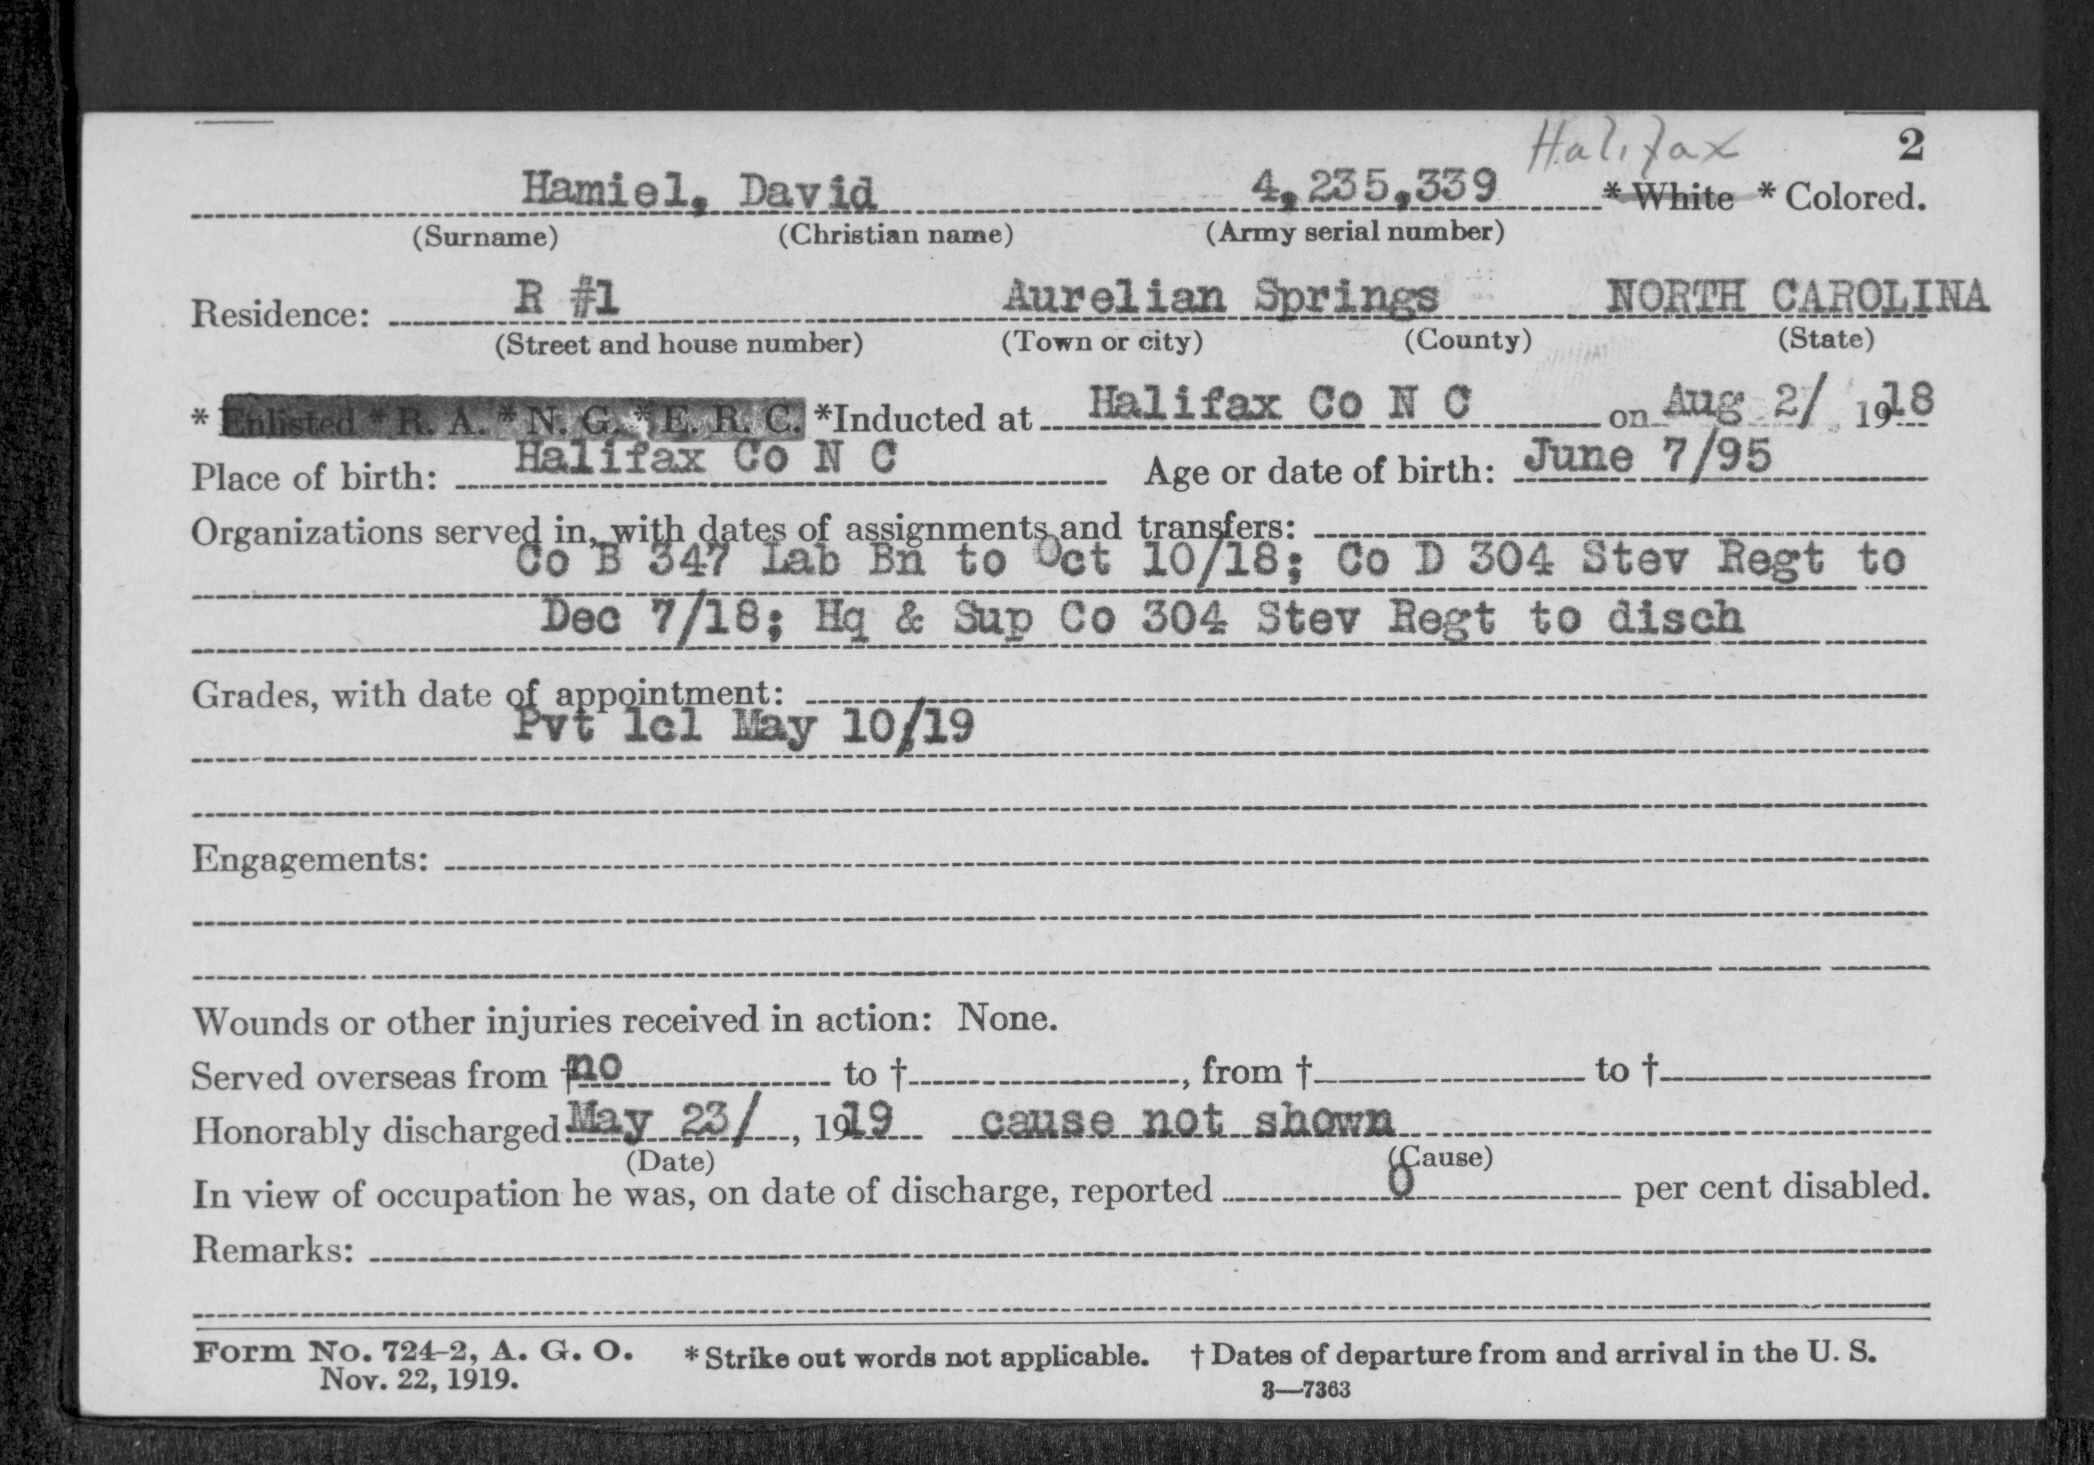 Halifax 2
Hamiel, David 4,235,339 * White * Colored.
(Surname) (Christian name) (Army serial number)
Residence: R #1 Aurelian Springs NORTH CAROLINA
(Street and house number) (Town or city) (County) (State)
* Enlisted * R. A. * N. G. * E. R. C. *Inducted at Halifax Co N C on Aug 2/ 1918
Place of birth: Halifax Co N C Age or date of birth: June 7/95
Organizations served in, with dates of assignments and transfers:
Co B 347 Lab Bn to Oct 10/18; Co D 304 Stev Regt to
Dec 7/18; Hq & Sup Co 304 Stev Regt to disch
Grades, with date of appointment:
Pvt 1cl May 10/19
Engagements:
Wounds or other injuries received in action: None.
Served overseas from † no to †, from † to †
Honorably discharged: May 23/, 1919 cause not shown
(Date) (Cause)
In view of occupation he was, on date of discharge, reported 0 per cent disabled.
Remarks:
Form No. 724-2, A. G. O. * Strike out words not applicable. † Dates of departure from and arrival in the U. S.
Nov. 22, 1919. 3—7363